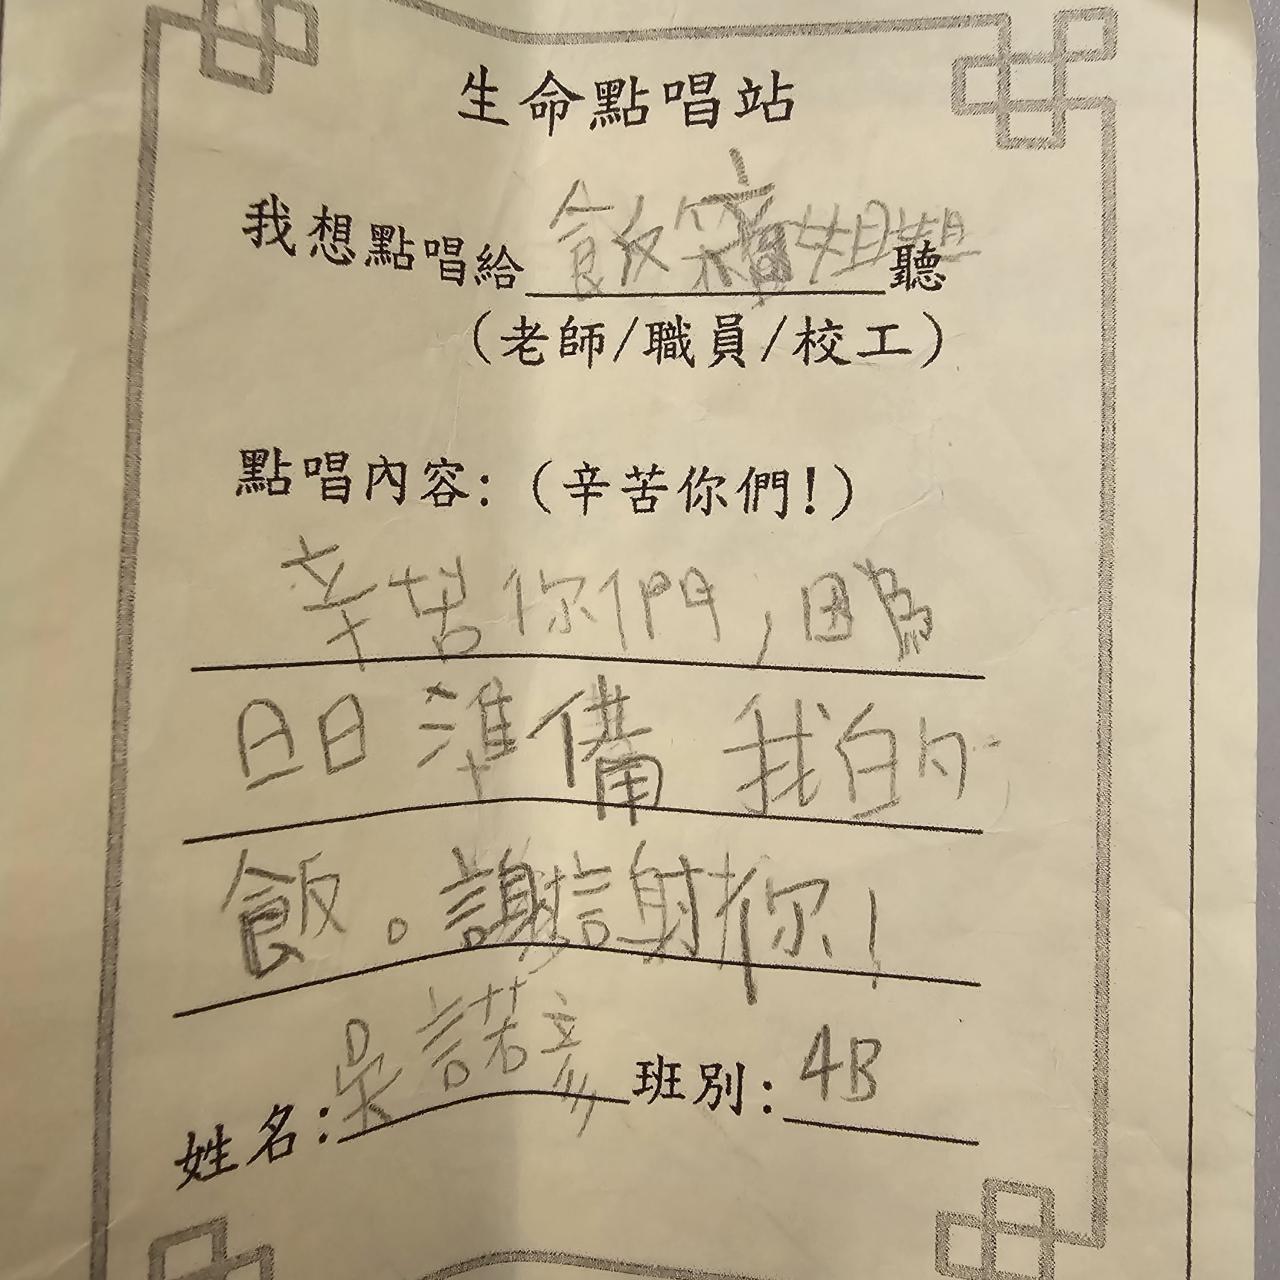 生命點唱站
我想點唱給飯 姐姐聽
(老師/職員/校工)
點唱內容:(辛苦你們!)
辛苦你們,因為
日日準備我的
飯。謝謝你!
姓名:吳諾彥 班別:4B